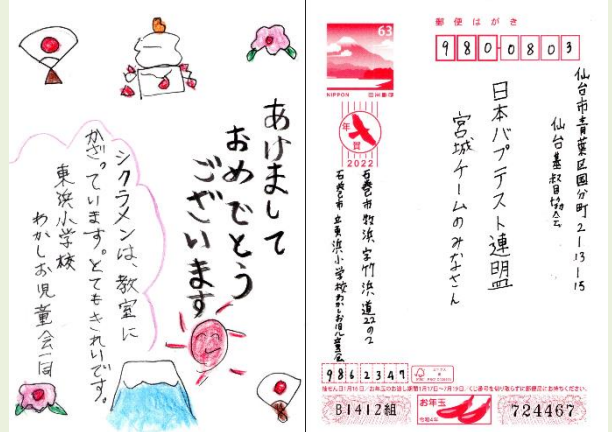 あけまして
おめでとう
ございます
シクラメンは、教室に
かざっています。とてもきれいです。
東浜小学校
わかしお児童会一同
郵便はがき
63
NIPPON 日本郵便
年賀
2022
980-0803
仙台市青葉区国分町2-13-15
仙台基督教会
日本バプテスト連盟
宮城チームのみなさん
石巻市牧浜字竹浜道22の2
石巻市立東浜小学校わかしお児童会
9862347
お年玉
B1412組
724467